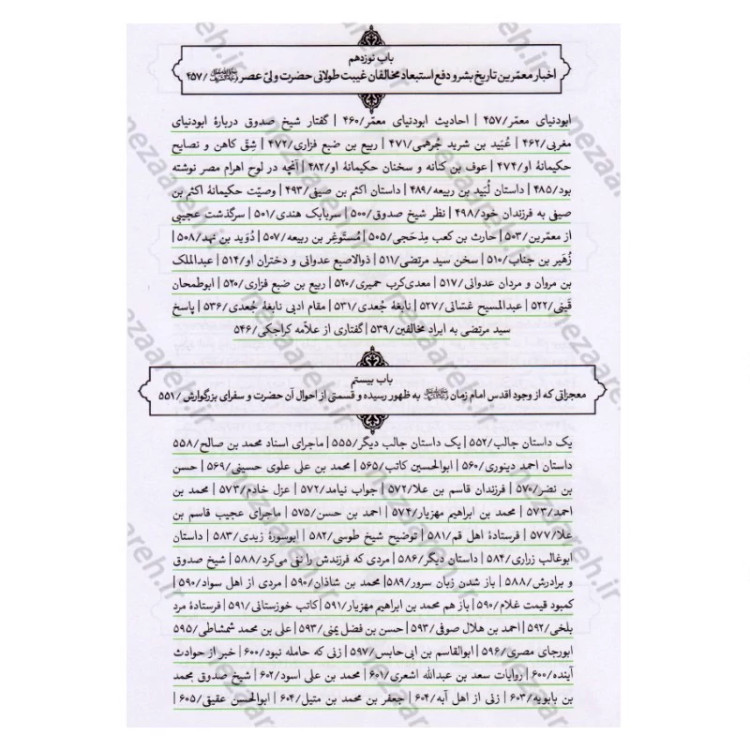 باب نوزدهم
اخبار معمّرین تاریخ بشر و دفع استبعاد مخالفان غیبت طولانی حضرت ولیّ عصر /۴۵۷
ابودنیای معمّر/۴۵۷ | احادیث ابودنیای معمّر/۴۶۰ | گفتار شیخ صدوق دربارهٔ ابودنیای
مغربی/۴۶۲ | عُبَید بن شرید جُرهمی/۴۷۱ | ربیع بن ضبع فزاری/۴۷۲ | شِقّ کاهن و نصایح
حکیمانهٔ او/۴۷۴ | عوف بن کنانه و سخنان حکیمانهٔ او/۴۸۲ | آنچه در لوح اهرام مصر نوشته
بود/۴۸۵ | داستان لُبَید بن ربیعه/۴۸۹ | داستان اکثم بن صیفی/۴۹۳ | وصیّت حکیمانهٔ اکثم بن
صیفی به فرزندان خود/۴۹۸ | نظر شیخ صدوق/۵۰۰ | سربابک هندی/۵۰۱ | سرگذشت عجیبی
از معمّرین/۵۰۳ | حارث بن کعب مِذحَجی/۵۰۵ | مُستَوغِر بن ربیعه/۵۰۷ | دُوَید بن نهد/۵۰۸ |
زُهَیر بن جناب/۵۱۰ | سخن سید مرتضی/۵۱۱ | ذوالاصبع عدوانی و دختران او/۵۱۴ | عبدالملک
بن مروان و مردان عدوانی/۵۱۷ | معدی‌کرب حمیری/۵۲۰ | ربیع بن ضبع فزاری/۵۲۰ | ابوطمحان
قینی/۵۲۲ | عبدالمسیح غسّانی/۵۲۷ | نابغهٔ جُعدی/۵۳۱ | مقام ادبی نابغهٔ جُعدی/۵۳۶ | پاسخ
سید مرتضی به ایراد مخالفین/۵۳۹ | گفتاری از علّامه کراجکی/۵۴۶
باب بیستم
معجزاتی که از وجود اقدس امام زمان به ظهور رسیده و قسمتی از احوال آن حضرت و سفرای بزرگوارش /۵۵۱
یک داستان جالب/۵۵۲ | یک داستان جالب دیگر/۵۵۵ | ماجرای اسناد محمد بن صالح/۵۵۸
داستان احمد دینوری/۵۶۰ | ابوالحسین کاتب/۵۶۵ | محمد بن علی علوی حسینی/۵۶۹ | حسن
بن نضر/۵۷۱ | فرزندان قاسم بن علا/۵۷۲ | جواب نیامد/۵۷۲ | عزل خادم/۵۷۳ | محمد بن
احمد/۵۷۳ | محمد بن ابراهیم مهزیار/۵۷۴ | احمد بن حسن/۵۷۵ | ماجرای عجیب قاسم بن
علا/۵۷۷ | فرستادهٔ اهل قم/۵۸۱ | توضیح شیخ طوسی/۵۸۲ | ابوسورهٔ زیدی/۵۸۳ | داستان
ابوغالب زراری/۵۸۴ | داستان دیگر/۵۸۶ | مردی که فرزندش را نفی می‌کرد/۵۸۸ | شیخ صدوق
و برادرش/۵۸۸ | باز شدن زبان سرور/۵۸۹ | محمد بن شاذان/۵۹۰ | مردی از اهل سواد/۵۹۰ |
کمبود قیمت غلام/۵۹۰ | باز هم محمد بن ابراهیم مهزیار/۵۹۱ | کاتب خوزستانی/۵۹۱ | فرستادهٔ مرد
بلخی/۵۹۲ | احمد بن هلال صوفی/۵۹۳ | حسن بن فضل یمنی/۵۹۳ | علی بن محمد شمشاطی/۵۹۵
ابورجای مصری/۵۹۶ | ابوالقاسم بن ابی‌حابس/۵۹۷ | زنی که حامله نبود/۶۰۰ | خبر از حوادث
آینده/۶۰۰ | روایات سعد بن عبدالله اشعری/۶۰۱ | محمد بن علی اسود/۶۰۲ | شیخ صدوق محمد
بن بابویه/۶۰۳ | زنی از اهل آبه/۶۰۴ | جعفر بن محمد بن متیل/۶۰۴ | ابوالحسن عقیقی/۶۰۵ |
nezaareh.ir